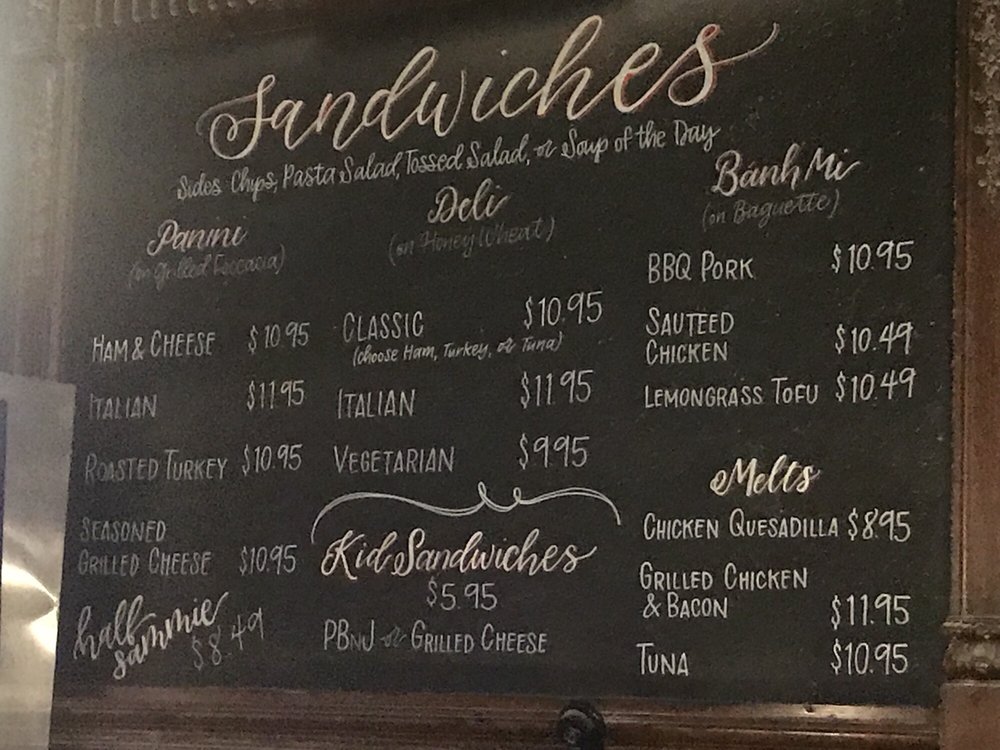 Sandwiches
Sides: Chips, Pasta Salad, Tossed Salad, or Soup of the Day
Panini
(on Grilled Foccacia)
HAM & CHEESE $10.95
ITALIAN $11.95
ROASTED TURKEY $10.95
SEASONED
GRILLED CHEESE $10.95
half
sammie $8.49
Deli
(on Honey Wheat)
CLASSIC $10.95
(choose Ham, Turkey, or Tuna)
ITALIAN $11.95
VEGETARIAN $9.95
Kid Sandwiches
$5.95
PBnJ or GRILLED CHEESE
Bánh Mi
(on Baguette)
BBQ PORK $10.95
SAUTEED
CHICKEN $10.49
LEMONGRASS TOFU $10.49
Melts
CHICKEN QUESADILLA $8.95
GRILLED CHICKEN
& BACON $11.95
TUNA $10.95